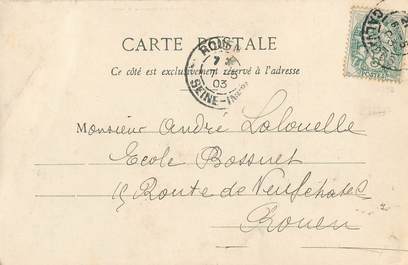 CARTE POSTALE
Ce côté est exclusivement réservé à l'adresse
ROUEN
7
03
SEINE-INFRE
CALVADOS
POSTES
Monsieur André Lalouelle
Ecole Bossuet
15 Route de Neufchatel
Rouen